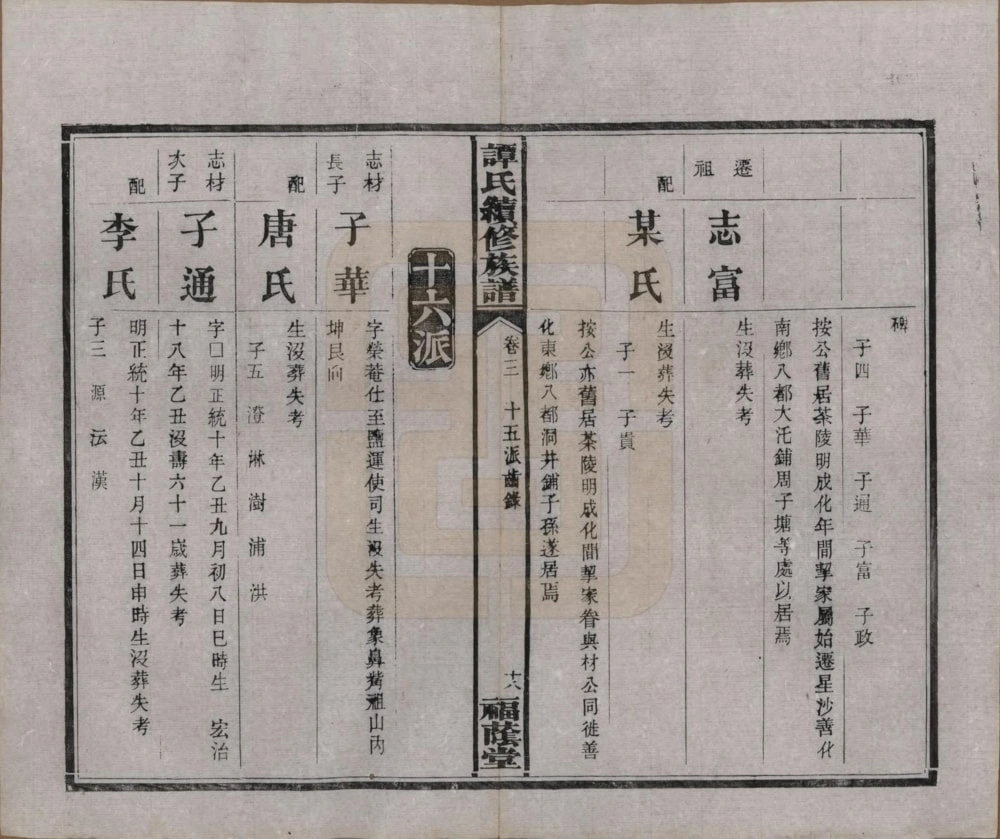 碑
子四　子華　子通　子富　子政
按公舊居茶陵明成化年間挈家屬始遷星沙善化
南鄉八都大汑鋪周子塘等處以居焉
遷祖
志富
生沒葬失考
配
某氏
生沒葬失考
子一　子貴
按公亦舊居茶陵明成化間挈家眷與材公同徙善
化東鄉八都洞井鋪子孫遂居焉
譚氏續修族譜
卷三　十五派齒錄
十八
福蔭堂
十六派
志材長子
子華
字榮菴仕至鹽運使司生沒失考葬象鼻觜祖山內
坤艮向
配
唐氏
生沒葬失考
子五　澄　淋　澍　浦　洪
志材次子
子通
字囗明正統十年乙丑九月初八日巳時生　宏治
十八年乙丑沒壽六十一歲葬失考
配
李氏
明正統十年乙丑十月十四日申時生沒葬失考
子三　源　沄　漢